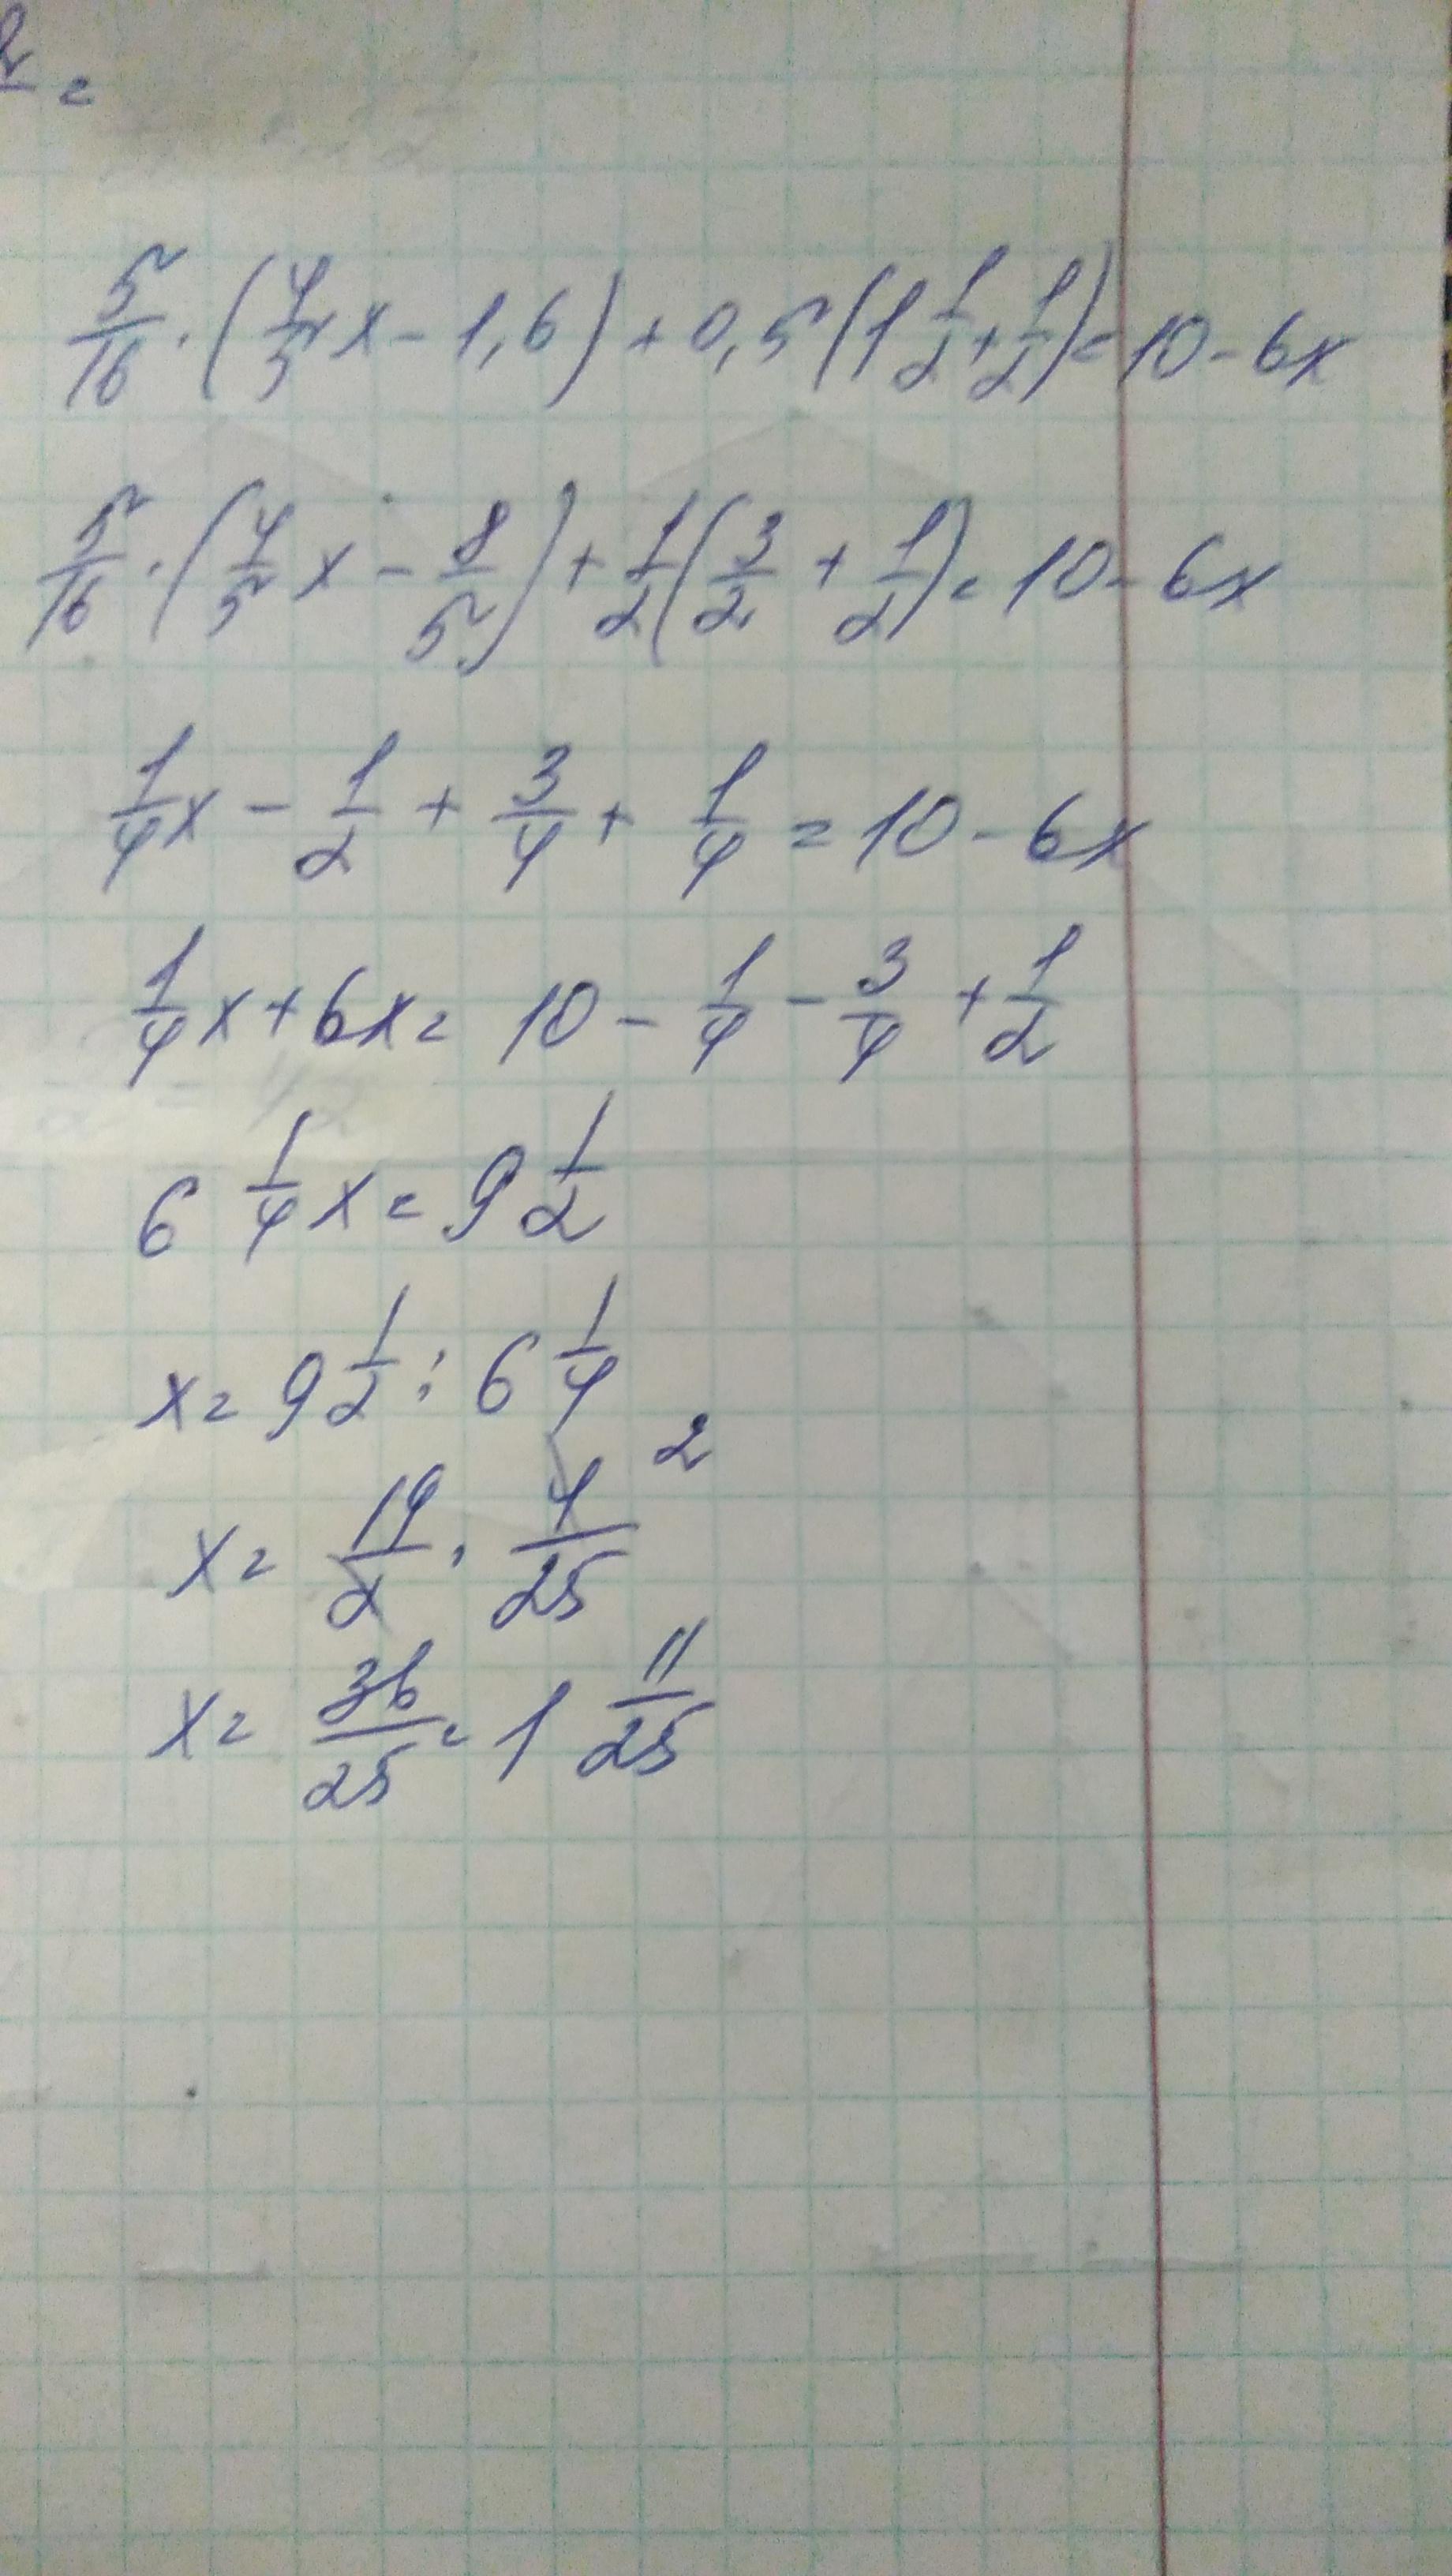 2/ =
5/16 · (4/5 x - 1,6) + 0,5 (1 1/2 + 1/2) = 10 - 6x
5/16 · (4/5 x - 8/5) + 1/2 (3/2 + 1/2) = 10 - 6x
1/4 x - 1/2 + 3/4 + 1/4 = 10 - 6x
1/4 x + 6x = 10 - 1/4 - 3/4 + 1/2
6 1/4 x = 9 1/2
x = 9 1/2 : 6 1/4
x = 19/2 · 4/25 2
x = 36/25 = 1 11/25